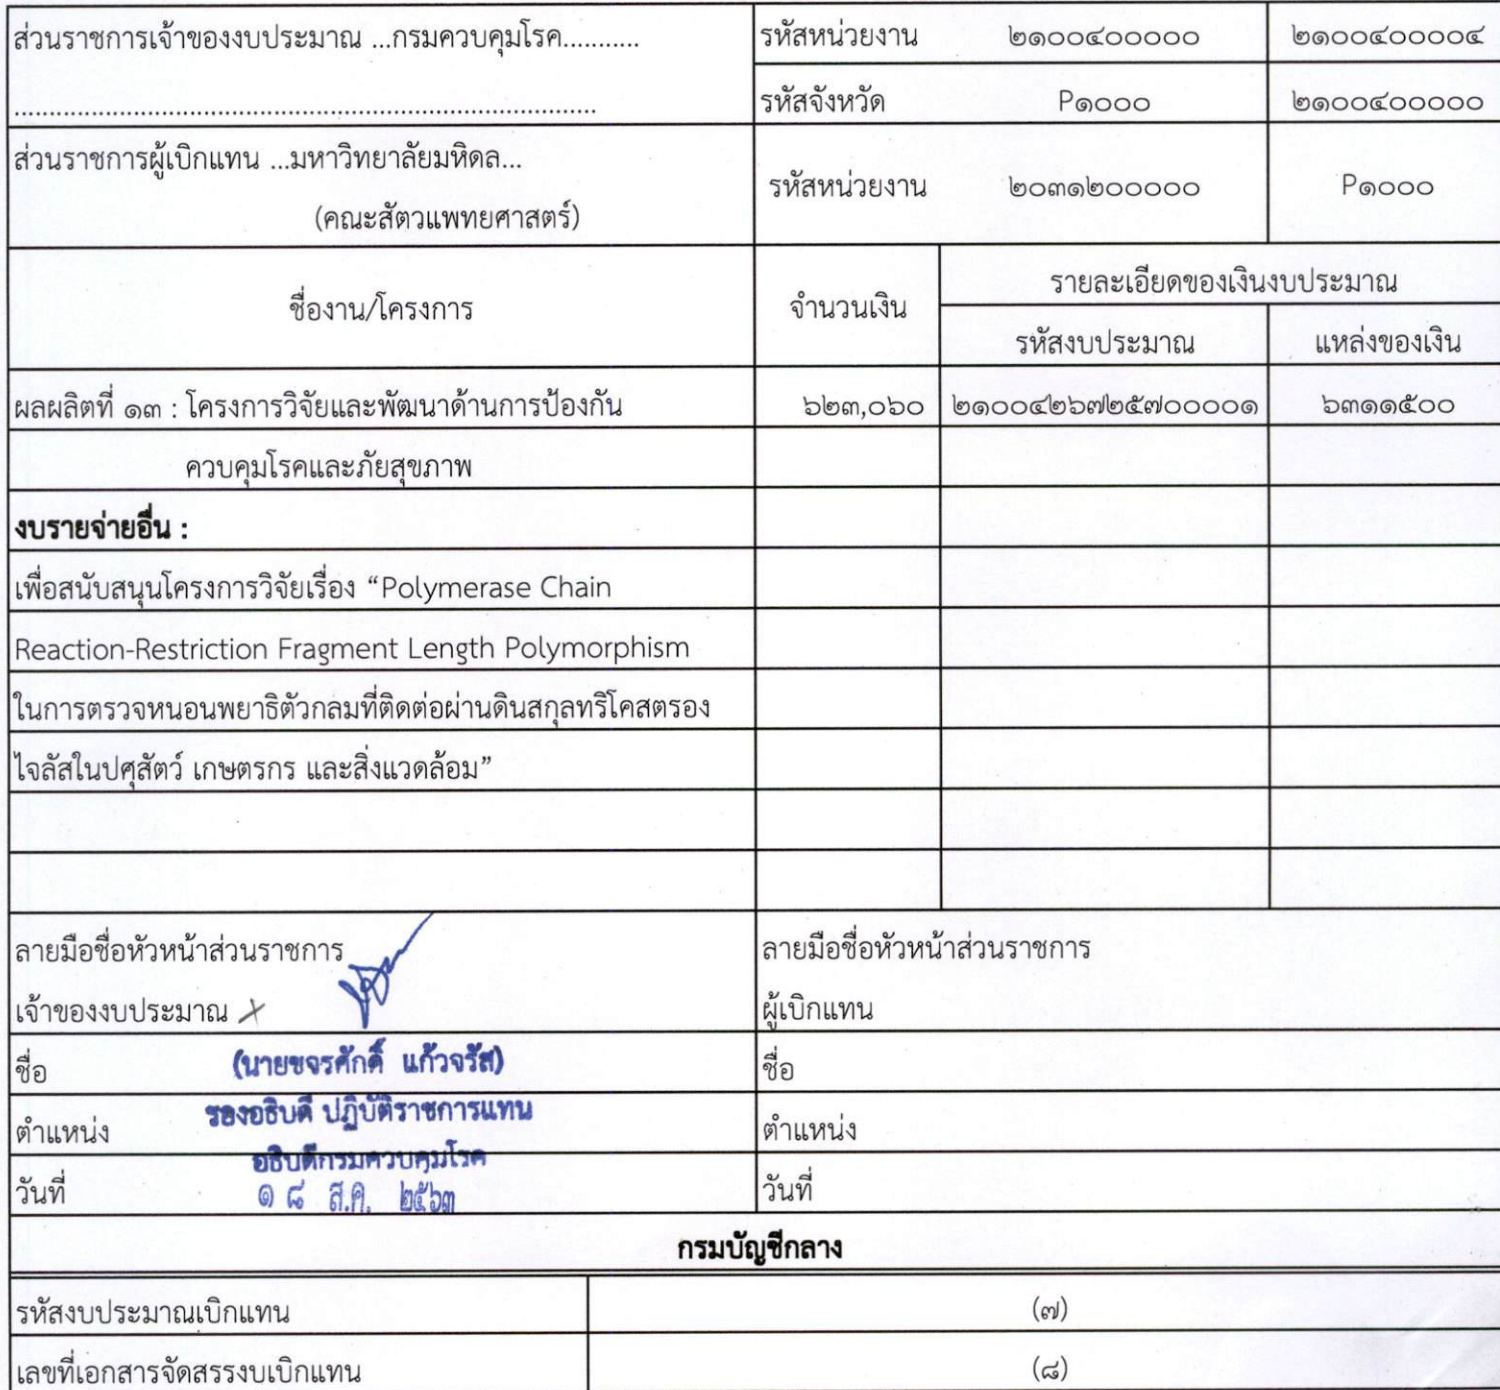 ส่วนราชการเจ้าของงบประมาณ ...กรมควบคุมโรค...........
รหัสหน่วยงาน ๒๑๐๐๔๐๐๐๐๐ ๒๑๐๐๔๐๐๐๐๔
..................................................................................
รหัสจังหวัด P๑๐๐๐ ๒๑๐๐๔๐๐๐๐๐
ส่วนราชการผู้เบิกแทน ...มหาวิทยาลัยมหิดล...
(คณะสัตวแพทยศาสตร์)
รหัสหน่วยงาน ๒๐๓๑๒๐๐๐๐๐ P๑๐๐๐
ชื่องาน/โครงการ จำนวนเงิน รายละเอียดของเงินงบประมาณ
รหัสงบประมาณ แหล่งของเงิน
ผลผลิตที่ ๑๓ : โครงการวิจัยและพัฒนาด้านการป้องกัน ๖๒๓,๐๖๐ ๒๑๐๐๔๒๖๗๒๕๗๐๐๐๐๑ ๖๓๑๑๕๐๐
ควบคุมโรคและภัยสุขภาพ
งบรายจ่ายอื่น :
เพื่อสนับสนุนโครงการวิจัยเรื่อง “Polymerase Chain
Reaction-Restriction Fragment Length Polymorphism
ในการตรวจหนอนพยาธิตัวกลมที่ติดต่อผ่านดินสกุลทริโคสตรอง
ไจลัสในปศุสัตว์ เกษตรกร และสิ่งแวดล้อม”
ลายมือชื่อหัวหน้าส่วนราชการ
เจ้าของงบประมาณ
ลายมือชื่อหัวหน้าส่วนราชการ
ผู้เบิกแทน
ชื่อ (นายขจรศักดิ์ แก้วจรัส)
ชื่อ
ตำแหน่ง รองอธิบดี ปฏิบัติราชการแทน
อธิบดีกรมควบคุมโรค
ตำแหน่ง
วันที่ ๑ ๘ ส.ค. ๒๕๖๓
วันที่
กรมบัญชีกลาง
รหัสงบประมาณเบิกแทน (๗)
เลขที่เอกสารจัดสรรงบเบิกแทน (๘)